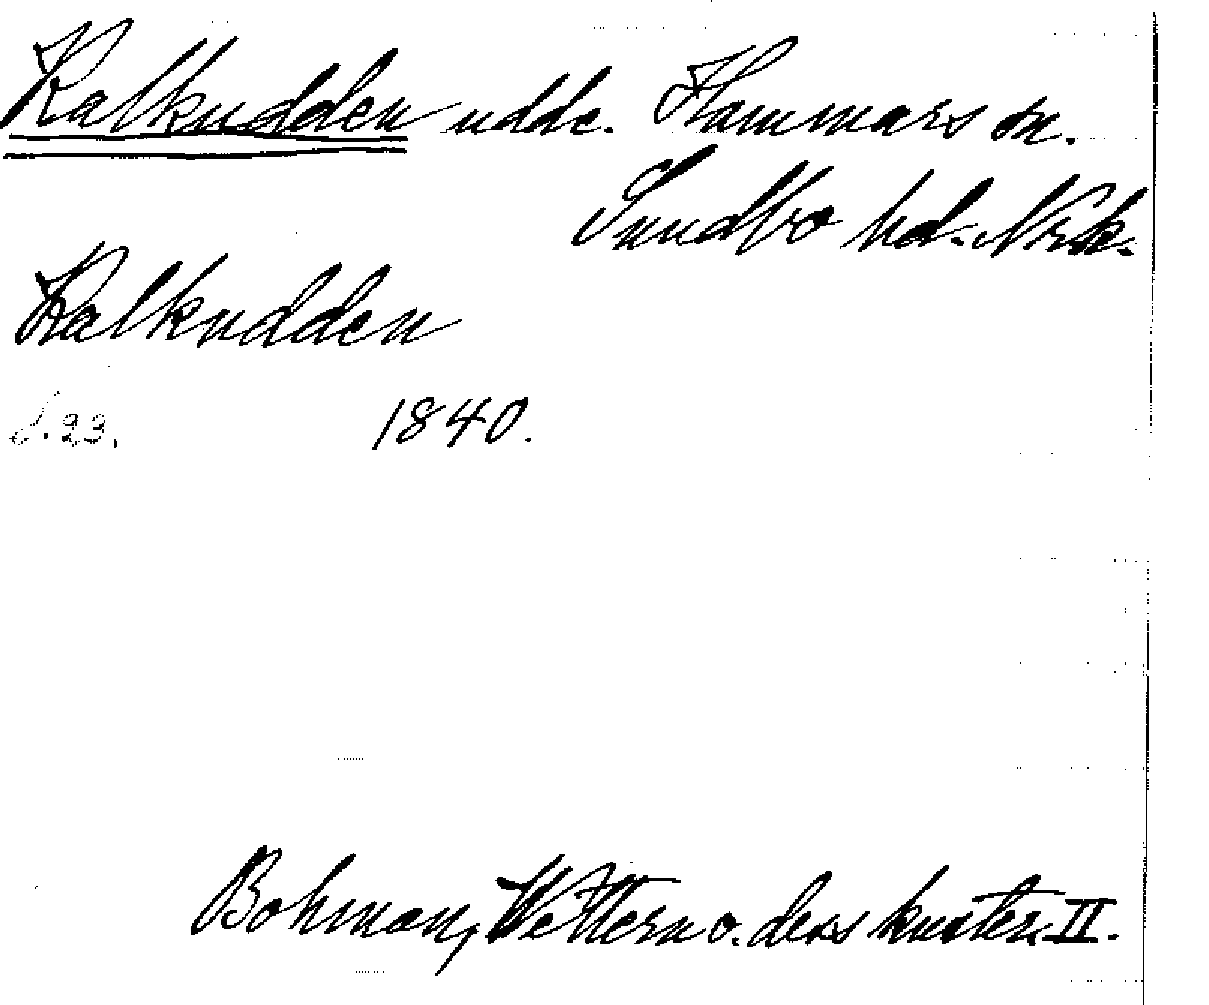 Kalkudden udde. Hammars sn.
Sundbo hd. Nrk.
Kalkudden
s. 23. 1840.
Bohman, Wettern o. dess kuster. II.